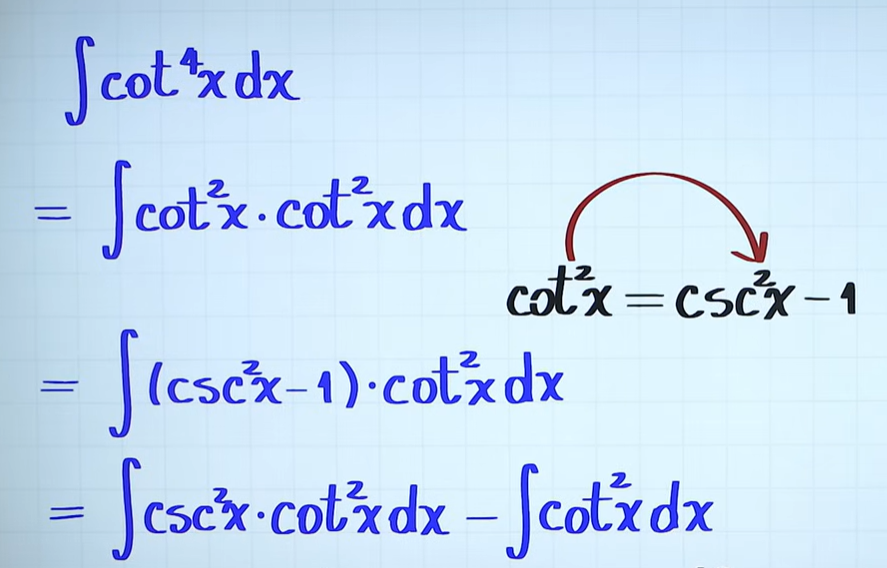 ∫cot⁴x dx
= ∫cot²x · cot²x dx
cot²x = csc²x − 1
= ∫(csc²x − 1) · cot²x dx
= ∫csc²x · cot²x dx − ∫cot²x dx